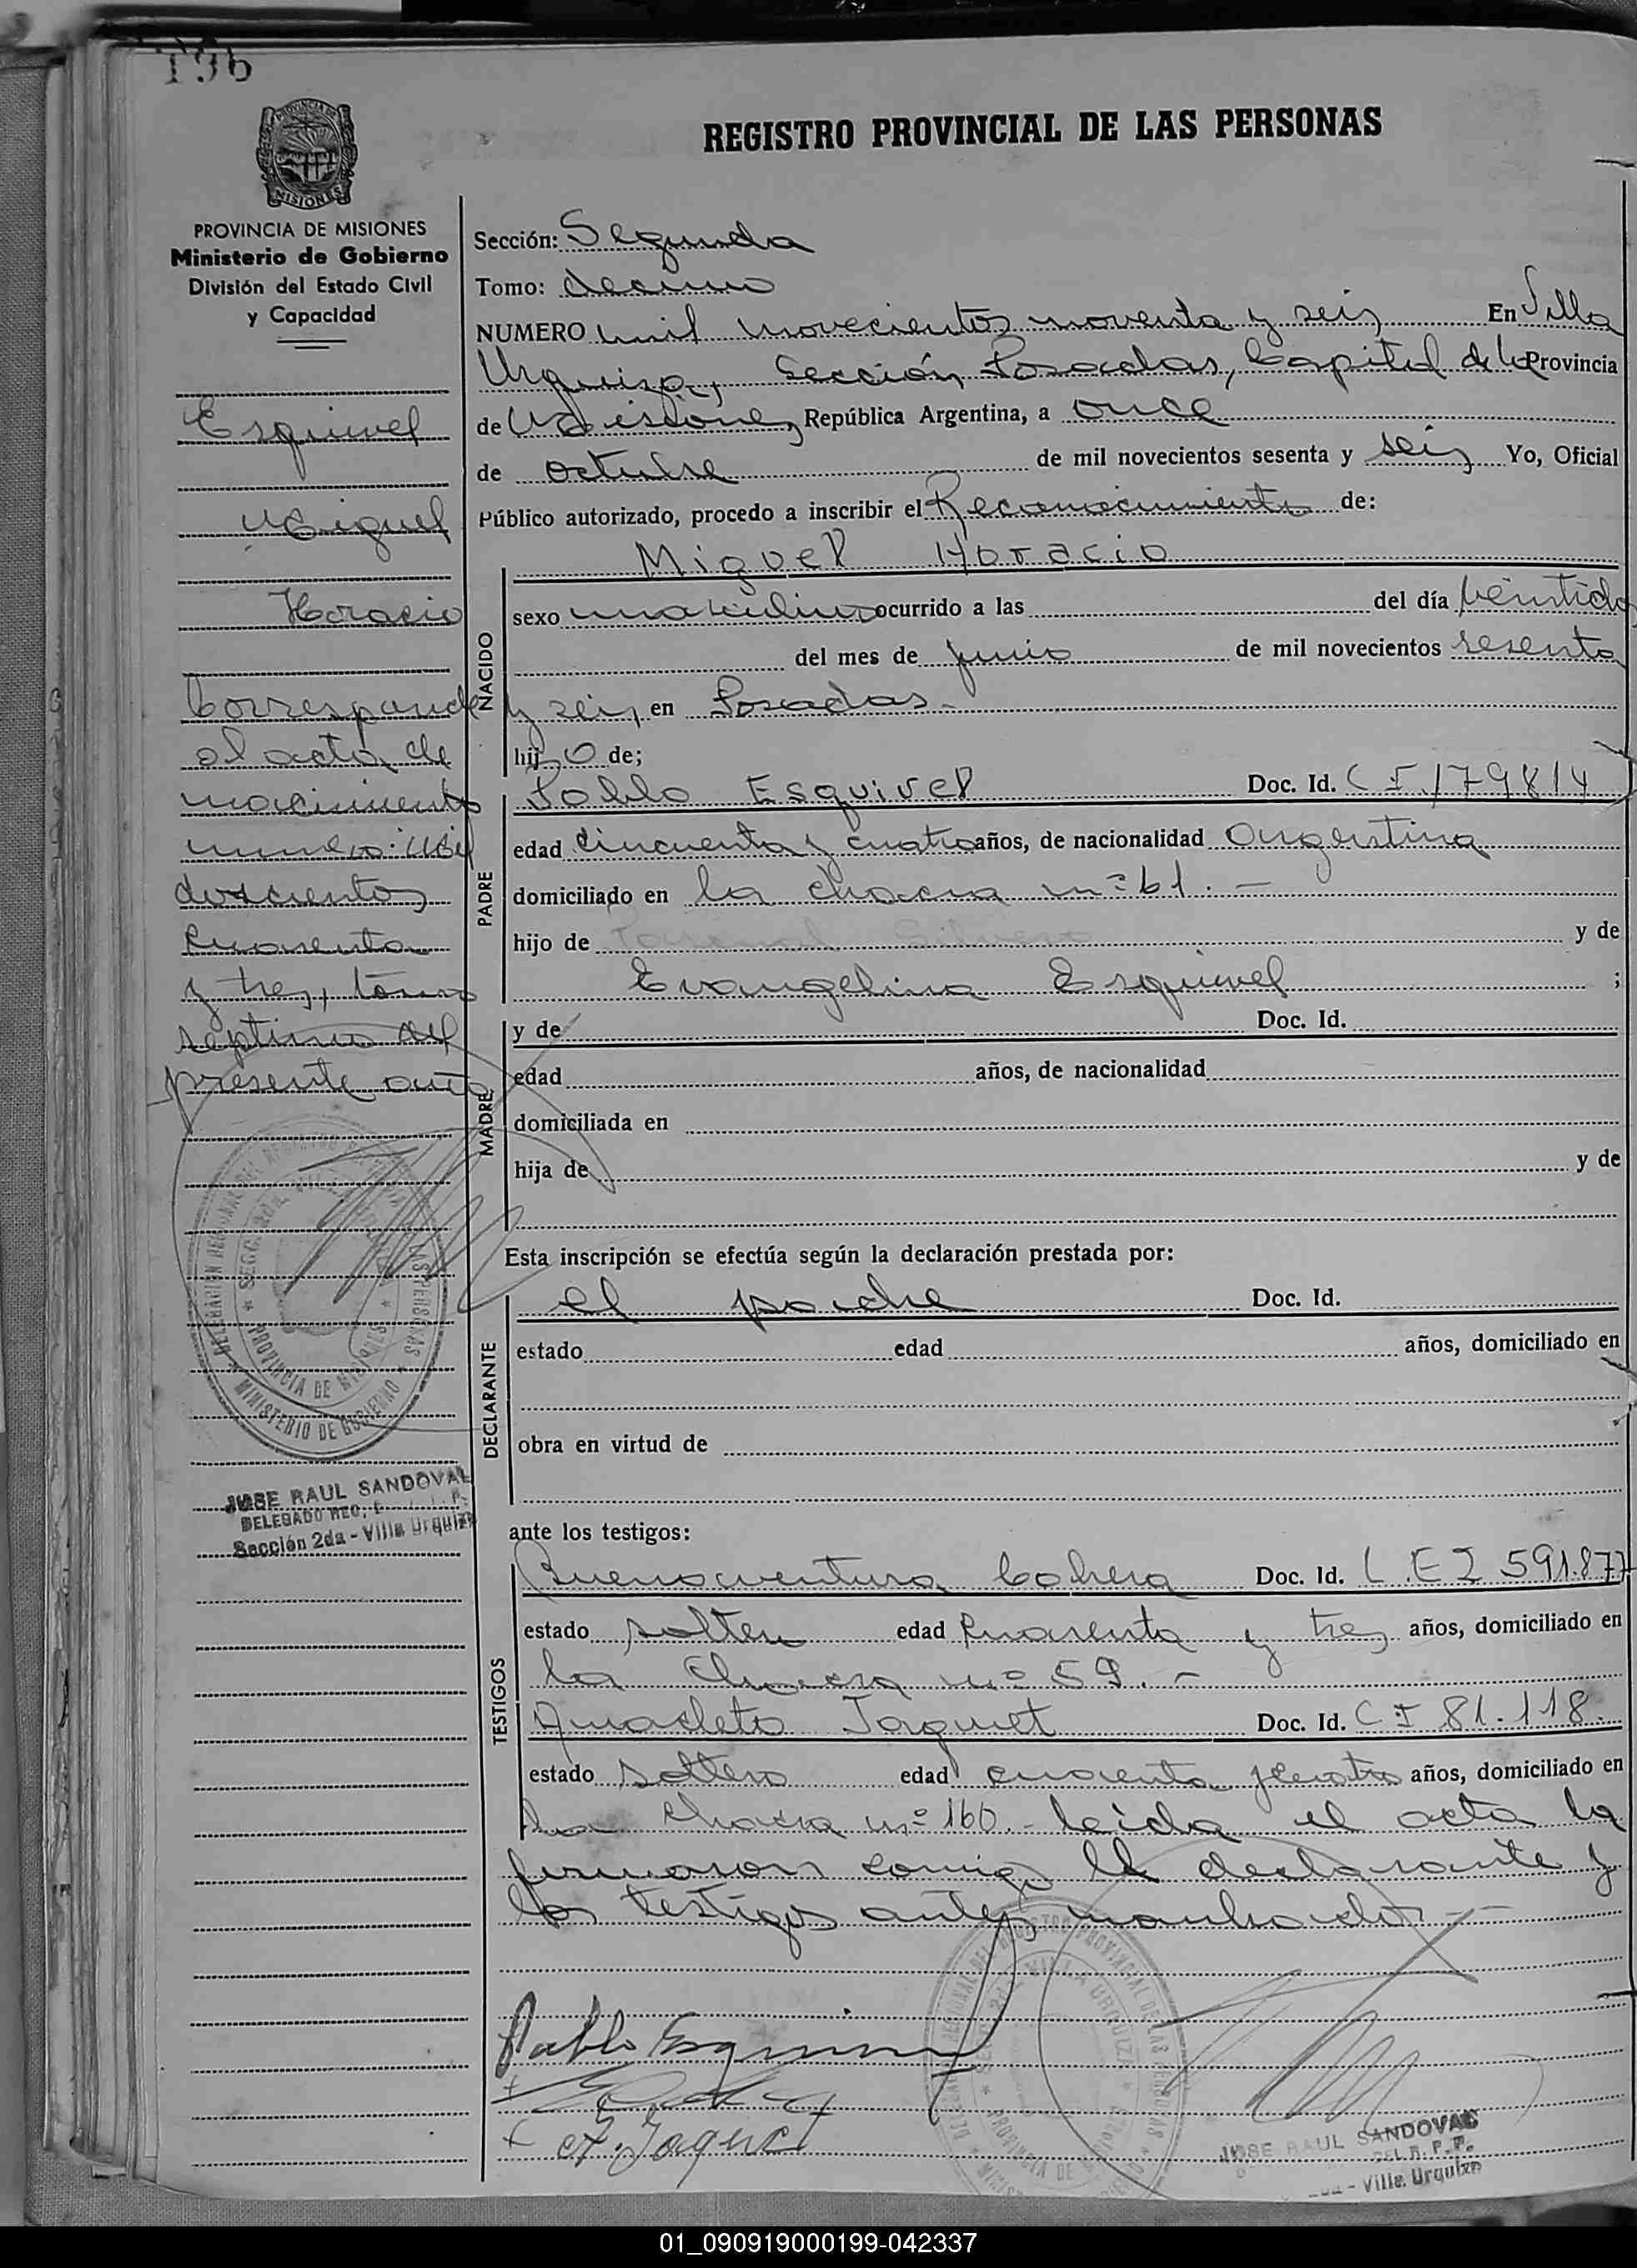 196
REGISTRO PROVINCIAL DE LAS PERSONAS
MISIONES
PROVINCIA DE MISIONES
Ministerio de Gobierno
División del Estado Civil
y Capacidad
Esquivel
Miguel
Horacio
Corresponde
al acta de
nacimiento
numero: Mil
doscientos
Cuarenta
y tres, tomo
septimo del
presente año
JOSE RAUL SANDOVAL
Sección 2da - Villa Urquiza
Sección: Segunda
Tomo: decimo
NUMERO mil novecientos noventa y seis En Villa
Urquiza, Sección Posadas, Capital de la Provincia
de Misiones, República Argentina, a once
de octubre de mil novecientos sesenta y seis Yo, Oficial
Público autorizado, procedo a inscribir el Reconocimiento de:
Miguel Horacio
NACIDO
sexo masculino ocurrido a las del día Veintidos
del mes de junio de mil novecientos sesenta
y seis, en Posadas.-
hijo de;
PADRE
Pablo Esquivel Doc. Id. C I 179814
edad Cincuenta y cuatro años, de nacionalidad Argentina
domiciliado en la chacra nº 61.-
hijo de y de
Evangelina Esquivel ;
MADRE
y de Doc. Id.
edad años, de nacionalidad
domiciliada en
hija de y de
Esta inscripción se efectúa según la declaración prestada por:
DECLARANTE
el padre Doc. Id.
estado edad años, domiciliado en
obra en virtud de
ante los testigos:
TESTIGOS
Buenaventura Cabrera Doc. Id. L.E 2 591.877
estado soltero edad Cuarenta y tres años, domiciliado en
la Chacra nº 59.-
Anacleto Jaquet Doc. Id. C I 81.118.
estado soltero edad cuarenta y cuatro años, domiciliado en
la Chacra nº 160.- leida el acta la
firmaron conmigo el declarante y
los testigos antes nombrados.-
Pablo Esquivel
A. Jaquet
JOSE RAUL SANDOVAL
DEL R. P. P.
- Villa Urquiza
01_090919000199-042337